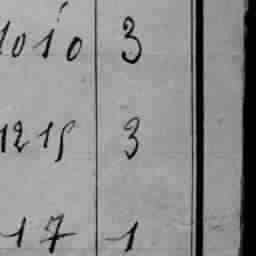 1010 3
1215 3
17 1